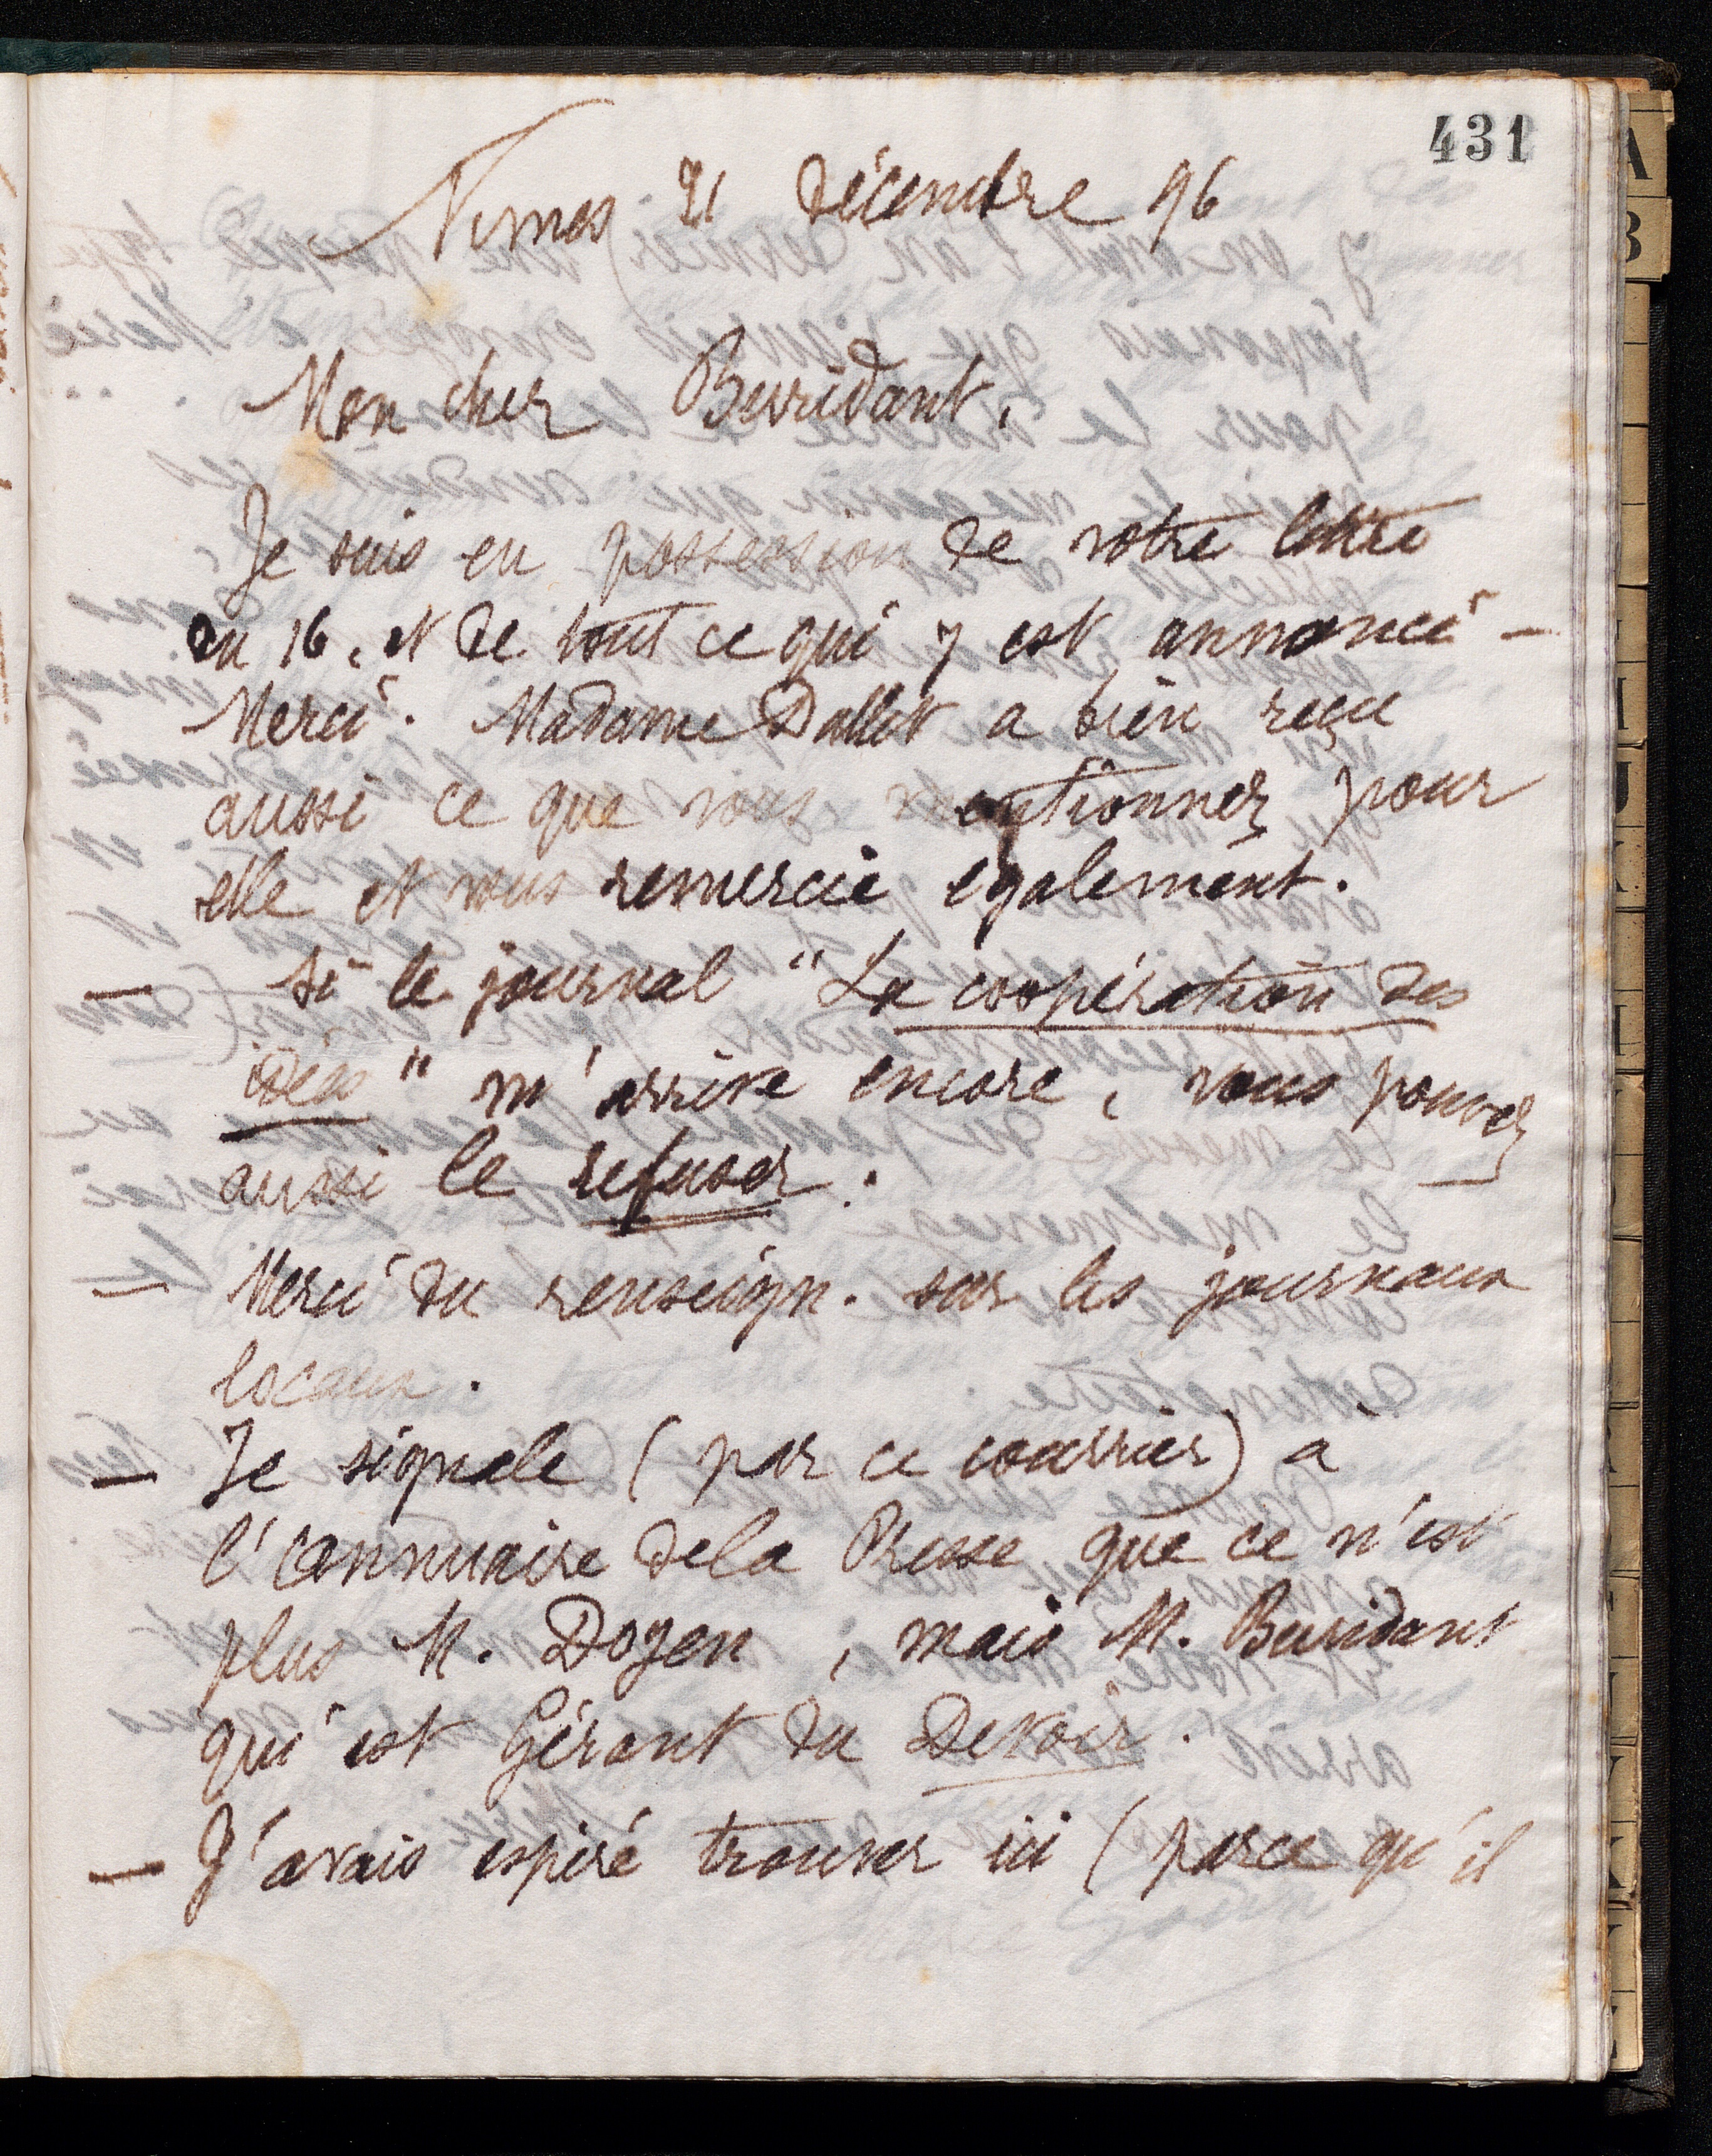 431
Nimes 21 décembre 96
Mon cher Buridant,
Je suis en possession de votre lettre
du 16, et de tout ce qui y est annoncé -
Merci. Madame Dallet a bien reçu
aussi ce que vous mentionnez pour
elle et vous remercie également.
— Si le journal "La coopération des
idées" m'arrive encore, vous pouvez
aussi le refuser.
— Merci du renseign. sur les journaux
locaux.
— Je signale (par ce courrier) à
l'annuaire de la Presse que ce n'est
plus M. Doyen, mais M. Buridant
qui est Gérant du Devoir.
— J'avais espéré trouver ici (parce qu'il
A
B